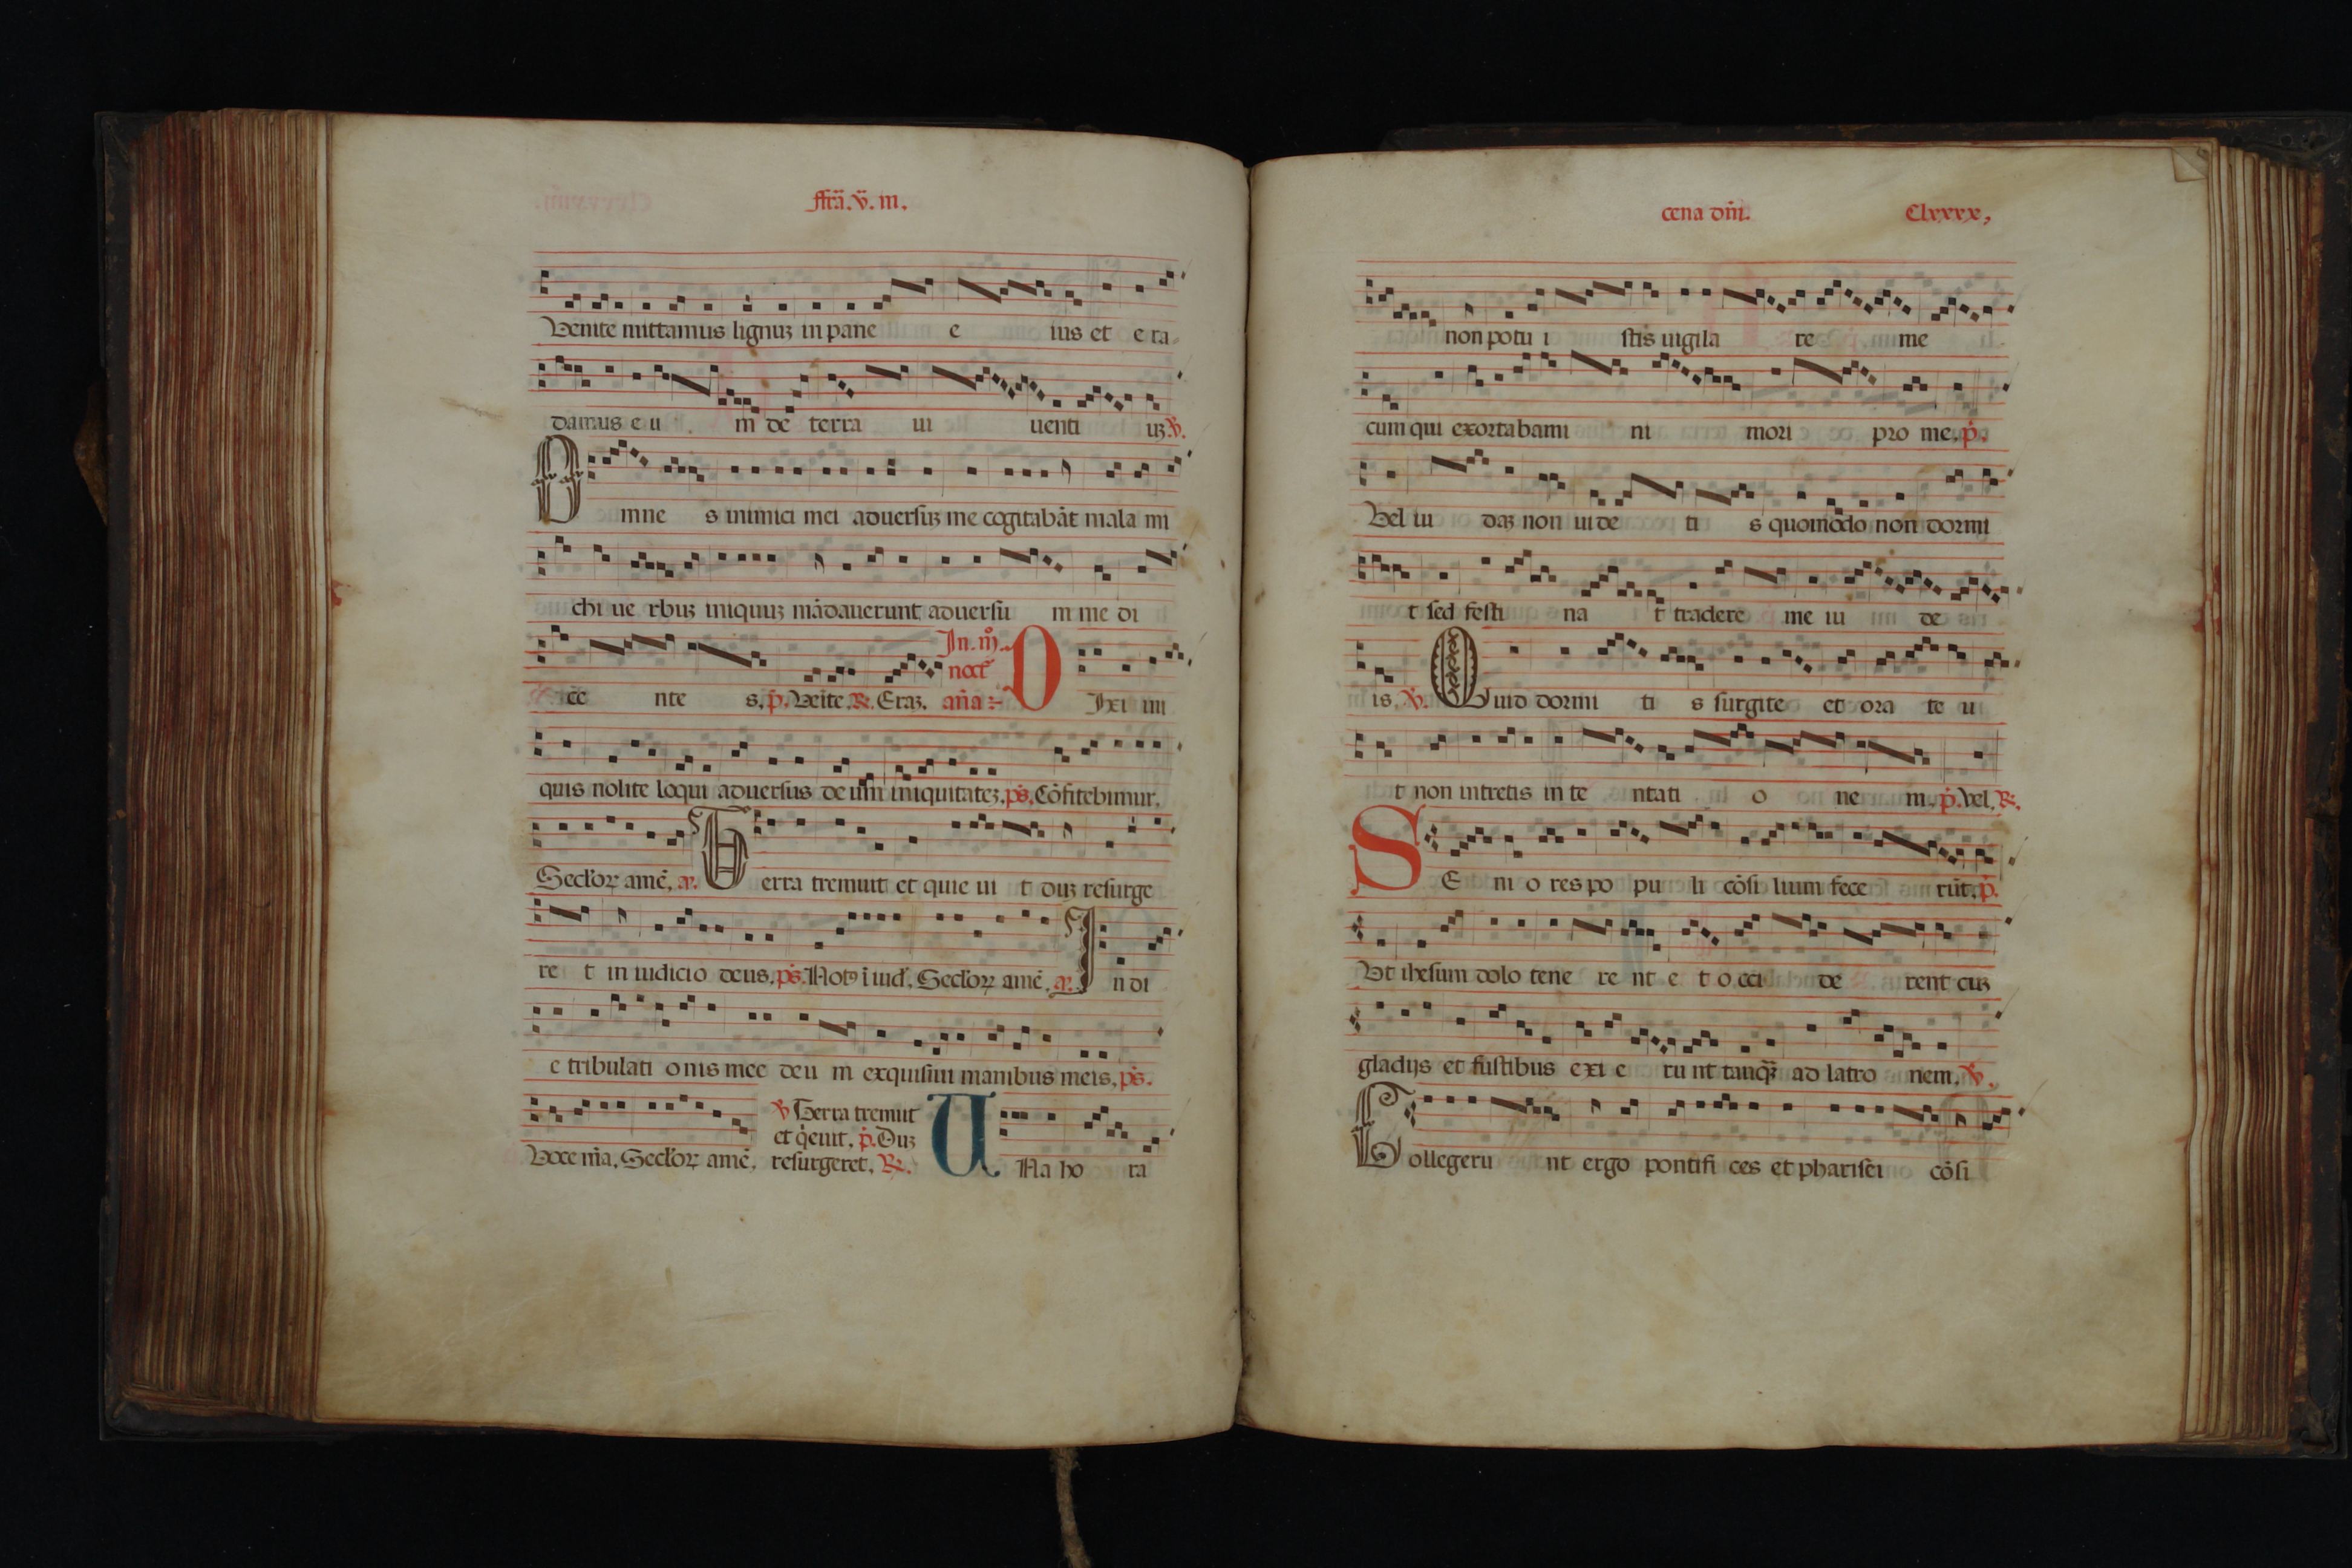 ffrã. v̈. in.
Venite mittamus lignuȝ in pane e ius et e ra
damus e u m de terra ui uenti uȝ. v̇.
Omne s inimici mei aduersuȝ me cogitabãt mala mi
chi ue rbuȝ iniquuȝ mãdauerunt aduersu m me di
ce nte s. p̃. Veite. R. Eraȝ. In. iij̊. noct̃ aña Dixi ini
quis nolite loqui aduersus de um iniquitateȝ. ps̃. Cõfitebimur.
Secloꝝ amẽ. a. Terra tremuit et quie ui t duȝ resurge
re t in iudicio deus. ps̃. Notꝰ ĩ iud̃. Seclorꝝ amẽ. a. In di
e tribulati onis mee deu m exquisiui manibus meis. ps̃.
Voce m̃a. Seclorꝝ amẽ. v̇ Terra tremuit
et q̃euit. p̃. Duȝ
resurgeret. R. Una ho ra
cena dñi. Clxxxx,
non potu i stis uigila re me
cum qui exortabami ni mori pro me. p̃.
Vel iu daȝ non uide ti s quomodo non dormi
t sed festi na t tradere me iu de
is. v̇. Quid dormi ti s surgite et ora te u
t non intretis in te ntati o ne m. p̃. Vel. R.
SE ni o res po pu li cõsi lium fece rũt. p̃.
Vt ihesum dolo tene re nt e t o cci de rent cuȝ
gladijs et fustibus exi e ru nt tanq̃ȝ ad latro nem. v̇.
Collegeru nt ergo pontifi ces et pharisei cõsi